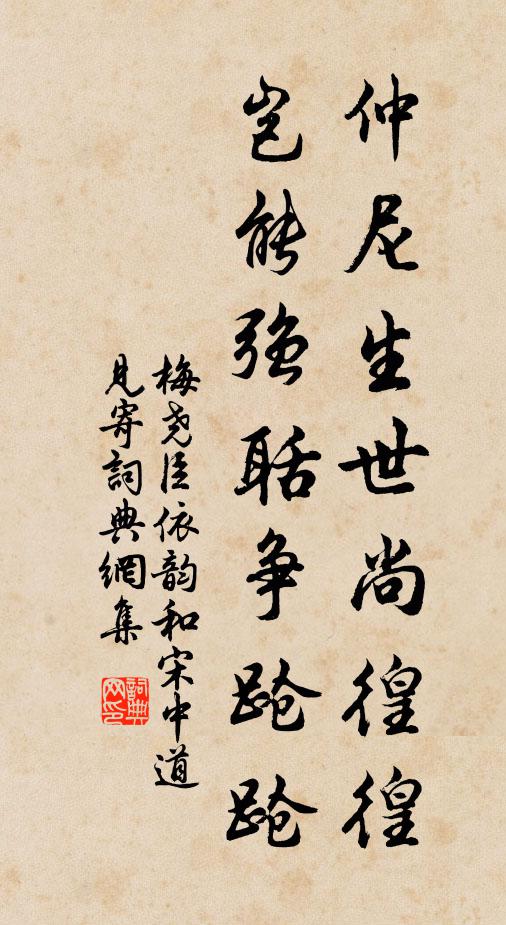 仲尼生世尚徨徨
岂能强聒争跄跄
梅尧臣依韵和宋中道
见寄词典網集
詞典
网印